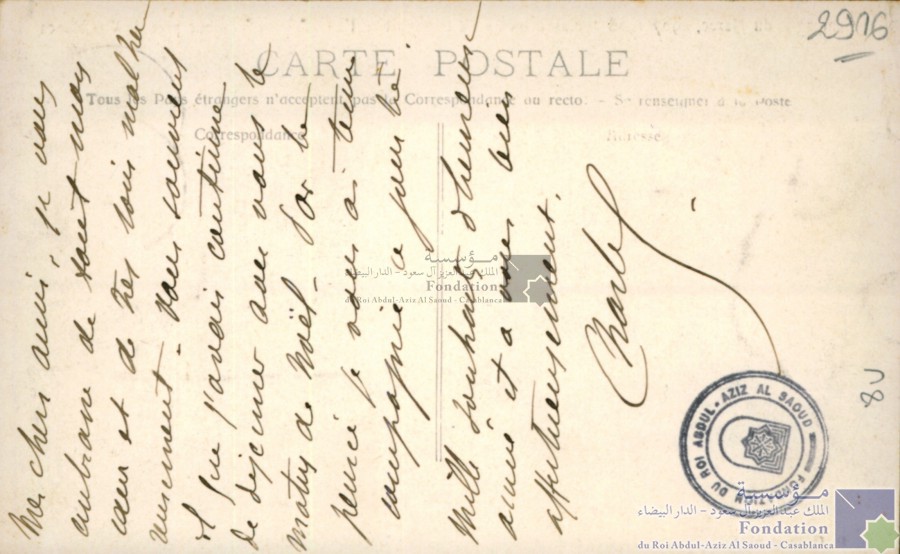 2916
CARTE POSTALE
Tous les Pays étrangers n'acceptent pas la Correspondance au recto. - Se renseigner à la Poste
Correspondance
Adresse
Mes chers amis, je vous
embrasse de tout mon
cœur et de très loin malheu
reusement - Vous souvient
il que j'avais coutume
de déjeuner avec vous le
matin de Noël. Par la
pensée je vous ai tenu
compagnie ce jour là.
Mille souhaits d'heureuse
année et à vous bien
affectueusement.
Charles
8U
FONDATION DU ROI ABDUL-AZIZ AL SAOUD
مؤسسة
الملك عبد العزيز آل سعود - الدار البيضاء
Fondation
du Roi Abdul-Aziz Al Saoud - Casablanca
مؤسسة
الملك عبد العزيز آل سعود - الدار البيضاء
Fondation
du Roi Abdul-Aziz Al Saoud - Casablanca